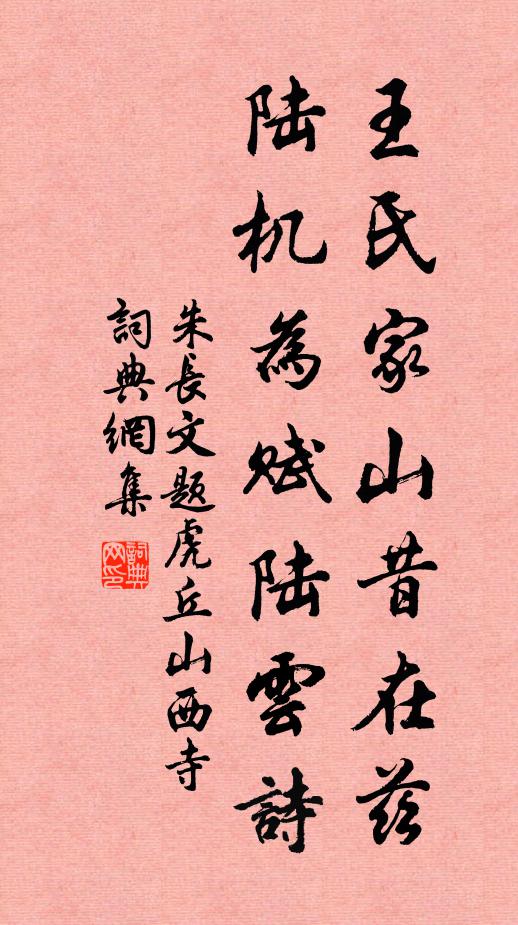 王氏家山昔在茲
陆机為赋陆雲詩
朱長文題虎丘山西寺
詞典網集
詞典网印